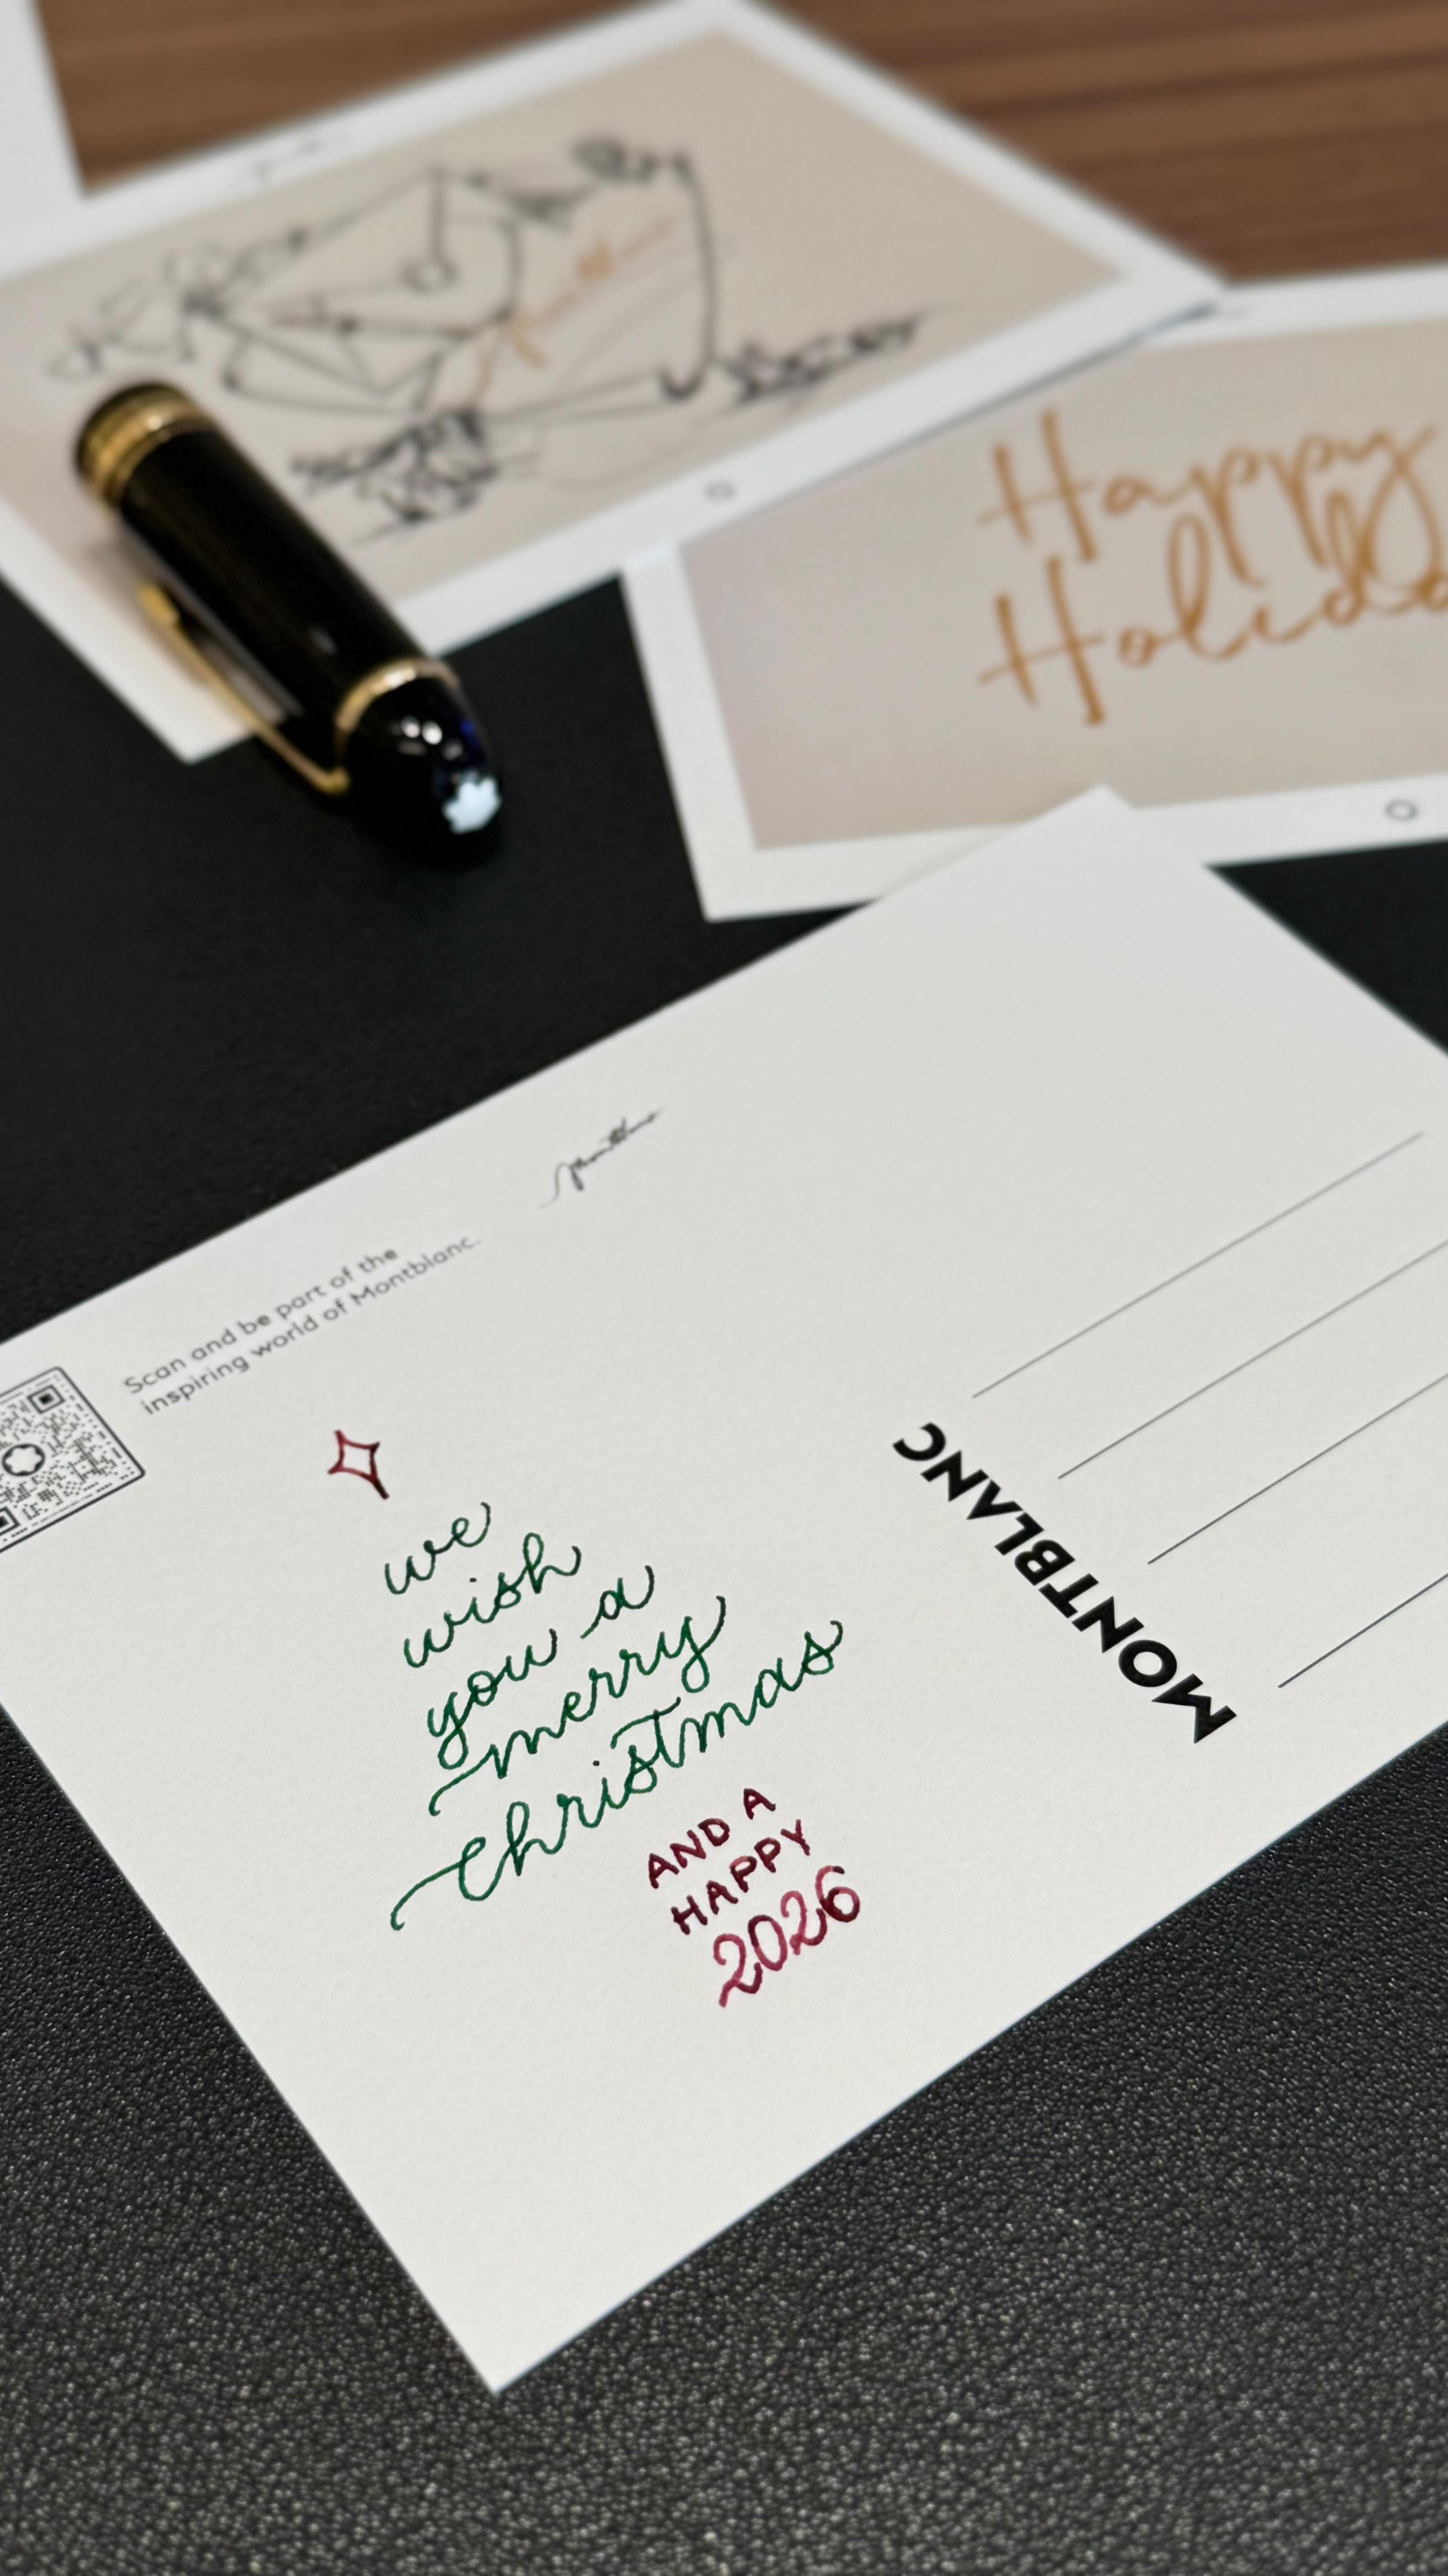 Happy
Holida
montblanc
Scan and be part of the
inspiring world of Montblanc.
we
wish
you a
merry
christmas
AND A
HAPPY
2026
MONTBLANC